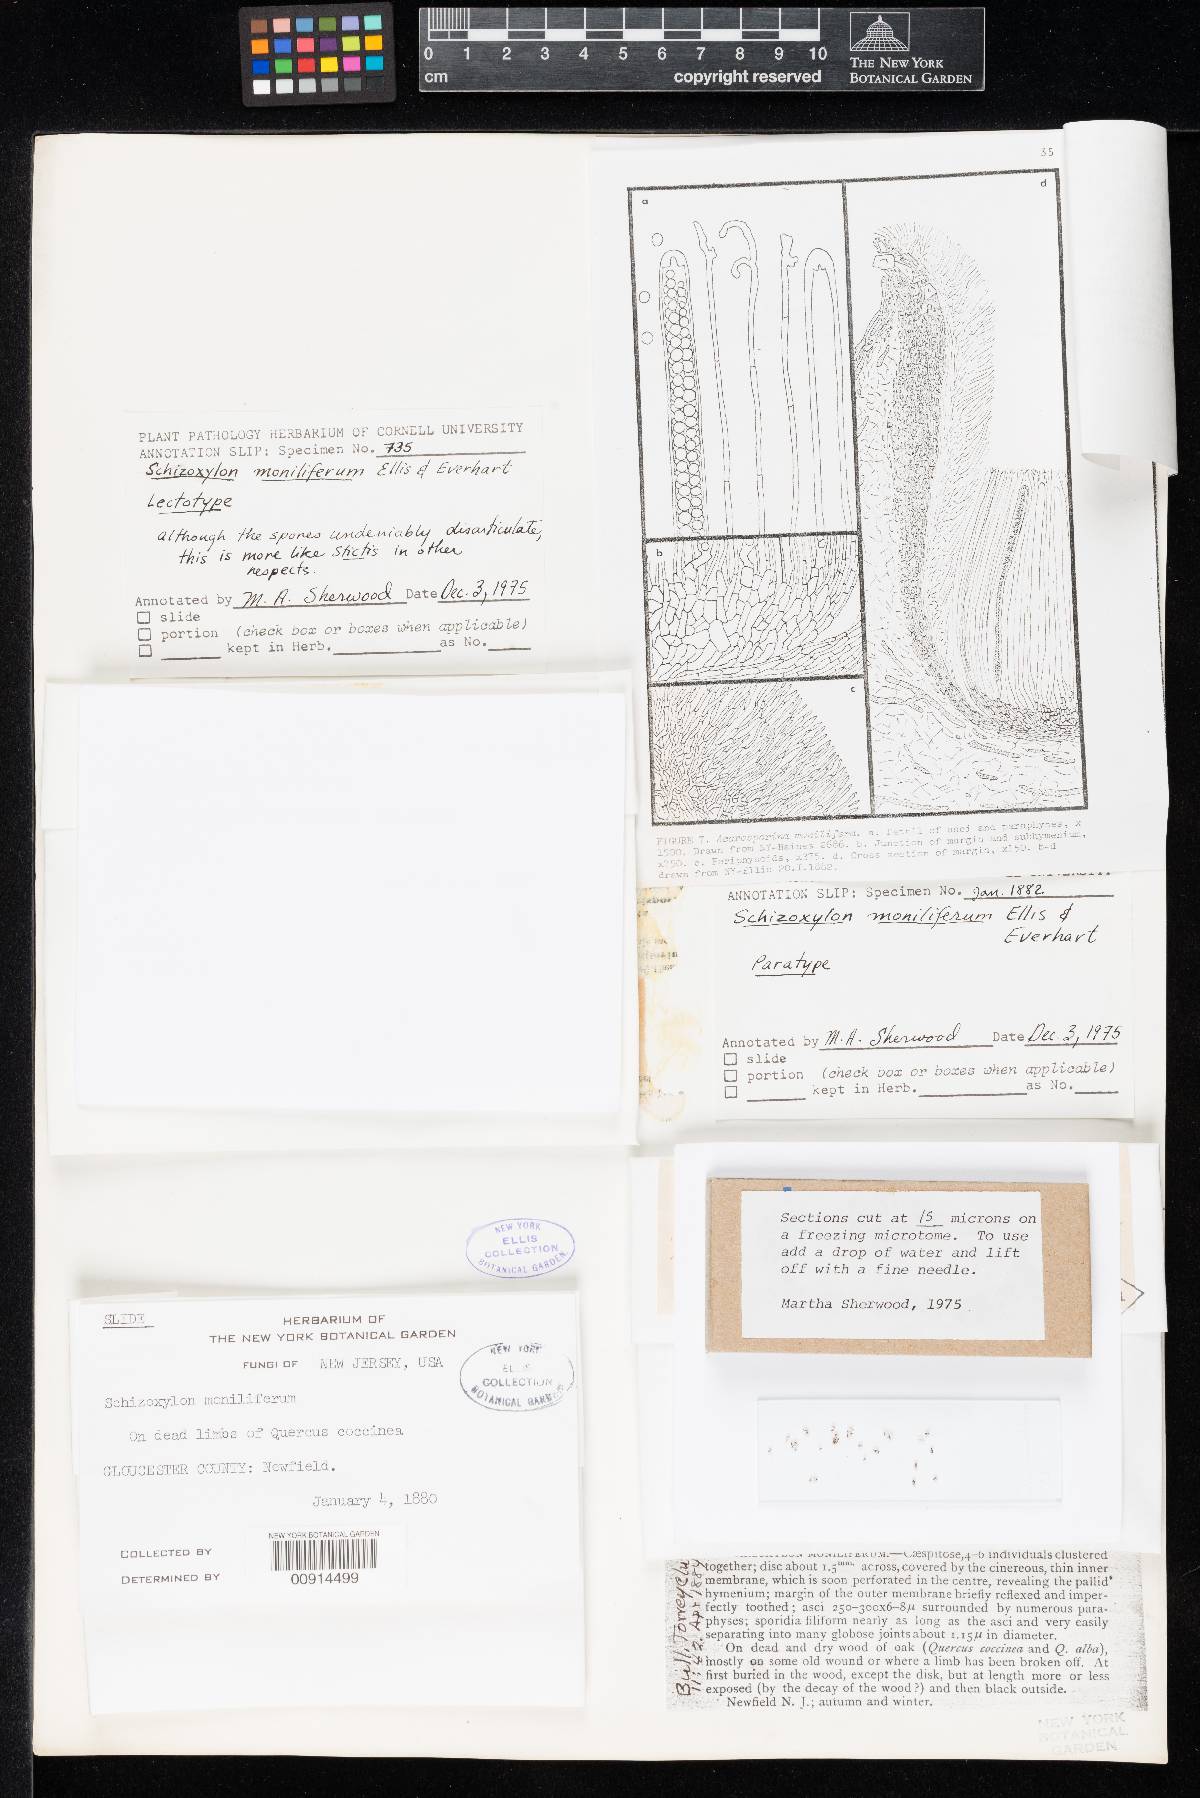 0 1 2 3 4 5 6 7 8 9 10
cm
copyright reserved
THE NEW YORK
BOTANICAL GARDEN
35
a
d
b
c
PLANT PATHOLOGY HERBARIUM OF CORNELL UNIVERSITY
ANNOTATION SLIP: Specimen No. 735
Schizoxylon moniliferum Ellis & Everhart
Lectotype
although the spores undeniably disarticulate,
this is more like Stictis in other
respects.
Annotated by M. A. Sherwood Date Dec. 3, 1975
slide
portion (check box or boxes when applicable)
kept in Herb. as No.
FIGURE 7. Acarosporina monilifera. a. Detail of asci and paraphyses, x
1500. Drawn from NY-Haines 2686. b. Junction of margin and subhymenium,
x750. c. Periphysoids, x375. d. Cross section of margin, x150. b-d
drawn from NY-Ellis 20.I.1882.
ANNOTATION SLIP: Specimen No. Jan. 1882
Schizoxylon moniliferum Ellis &
Everhart
Paratype
Annotated by M. A. Sherwood Date Dec. 3, 1975
slide
portion (check box or boxes when applicable)
kept in Herb. as No.
NEW YORK
ELLIS
COLLECTION
BOTANICAL GARDEN
Sections cut at 15 microns on
a freezing microtome. To use
add a drop of water and lift
off with a fine needle.
Martha Sherwood, 1975
SLIDE
HERBARIUM OF
THE NEW YORK BOTANICAL GARDEN
FUNGI OF NEW JERSEY, USA
NEW YORK
ELLIS
COLLECTION
BOTANICAL GARDEN
Schizoxylon moniliferum
On dead limbs of Quercus coccinea
GLOUCESTER COUNTY: Newfield.
January 4, 1880
COLLECTED BY
DETERMINED BY
NEW YORK BOTANICAL GARDEN
00914499
Bull. Torrey Club
11: 42. Apr 1884
MONILIFERUM.—Cæspitose, 4-6 individuals clustered
together; disc about 1.5mm. across, covered by the cinereous, thin inner
membrane, which is soon perforated in the centre, revealing the pallid
hymenium; margin of the outer membrane briefly reflexed and imper-
fectly toothed; asci 250-300x6-8µ surrounded by numerous para-
physes; sporidia filiform nearly as long as the asci and very easily
separating into many globose joints about 1.15µ in diameter.
On dead and dry wood of oak (Quercus coccinea and Q. alba),
mostly on some old wound or where a limb has been broken off. At
first buried in the wood, except the disk, but at length more or less
exposed (by the decay of the wood?) and then black outside.
Newfield N. J.; autumn and winter.
NEW YORK
BOTANICAL
GARDEN